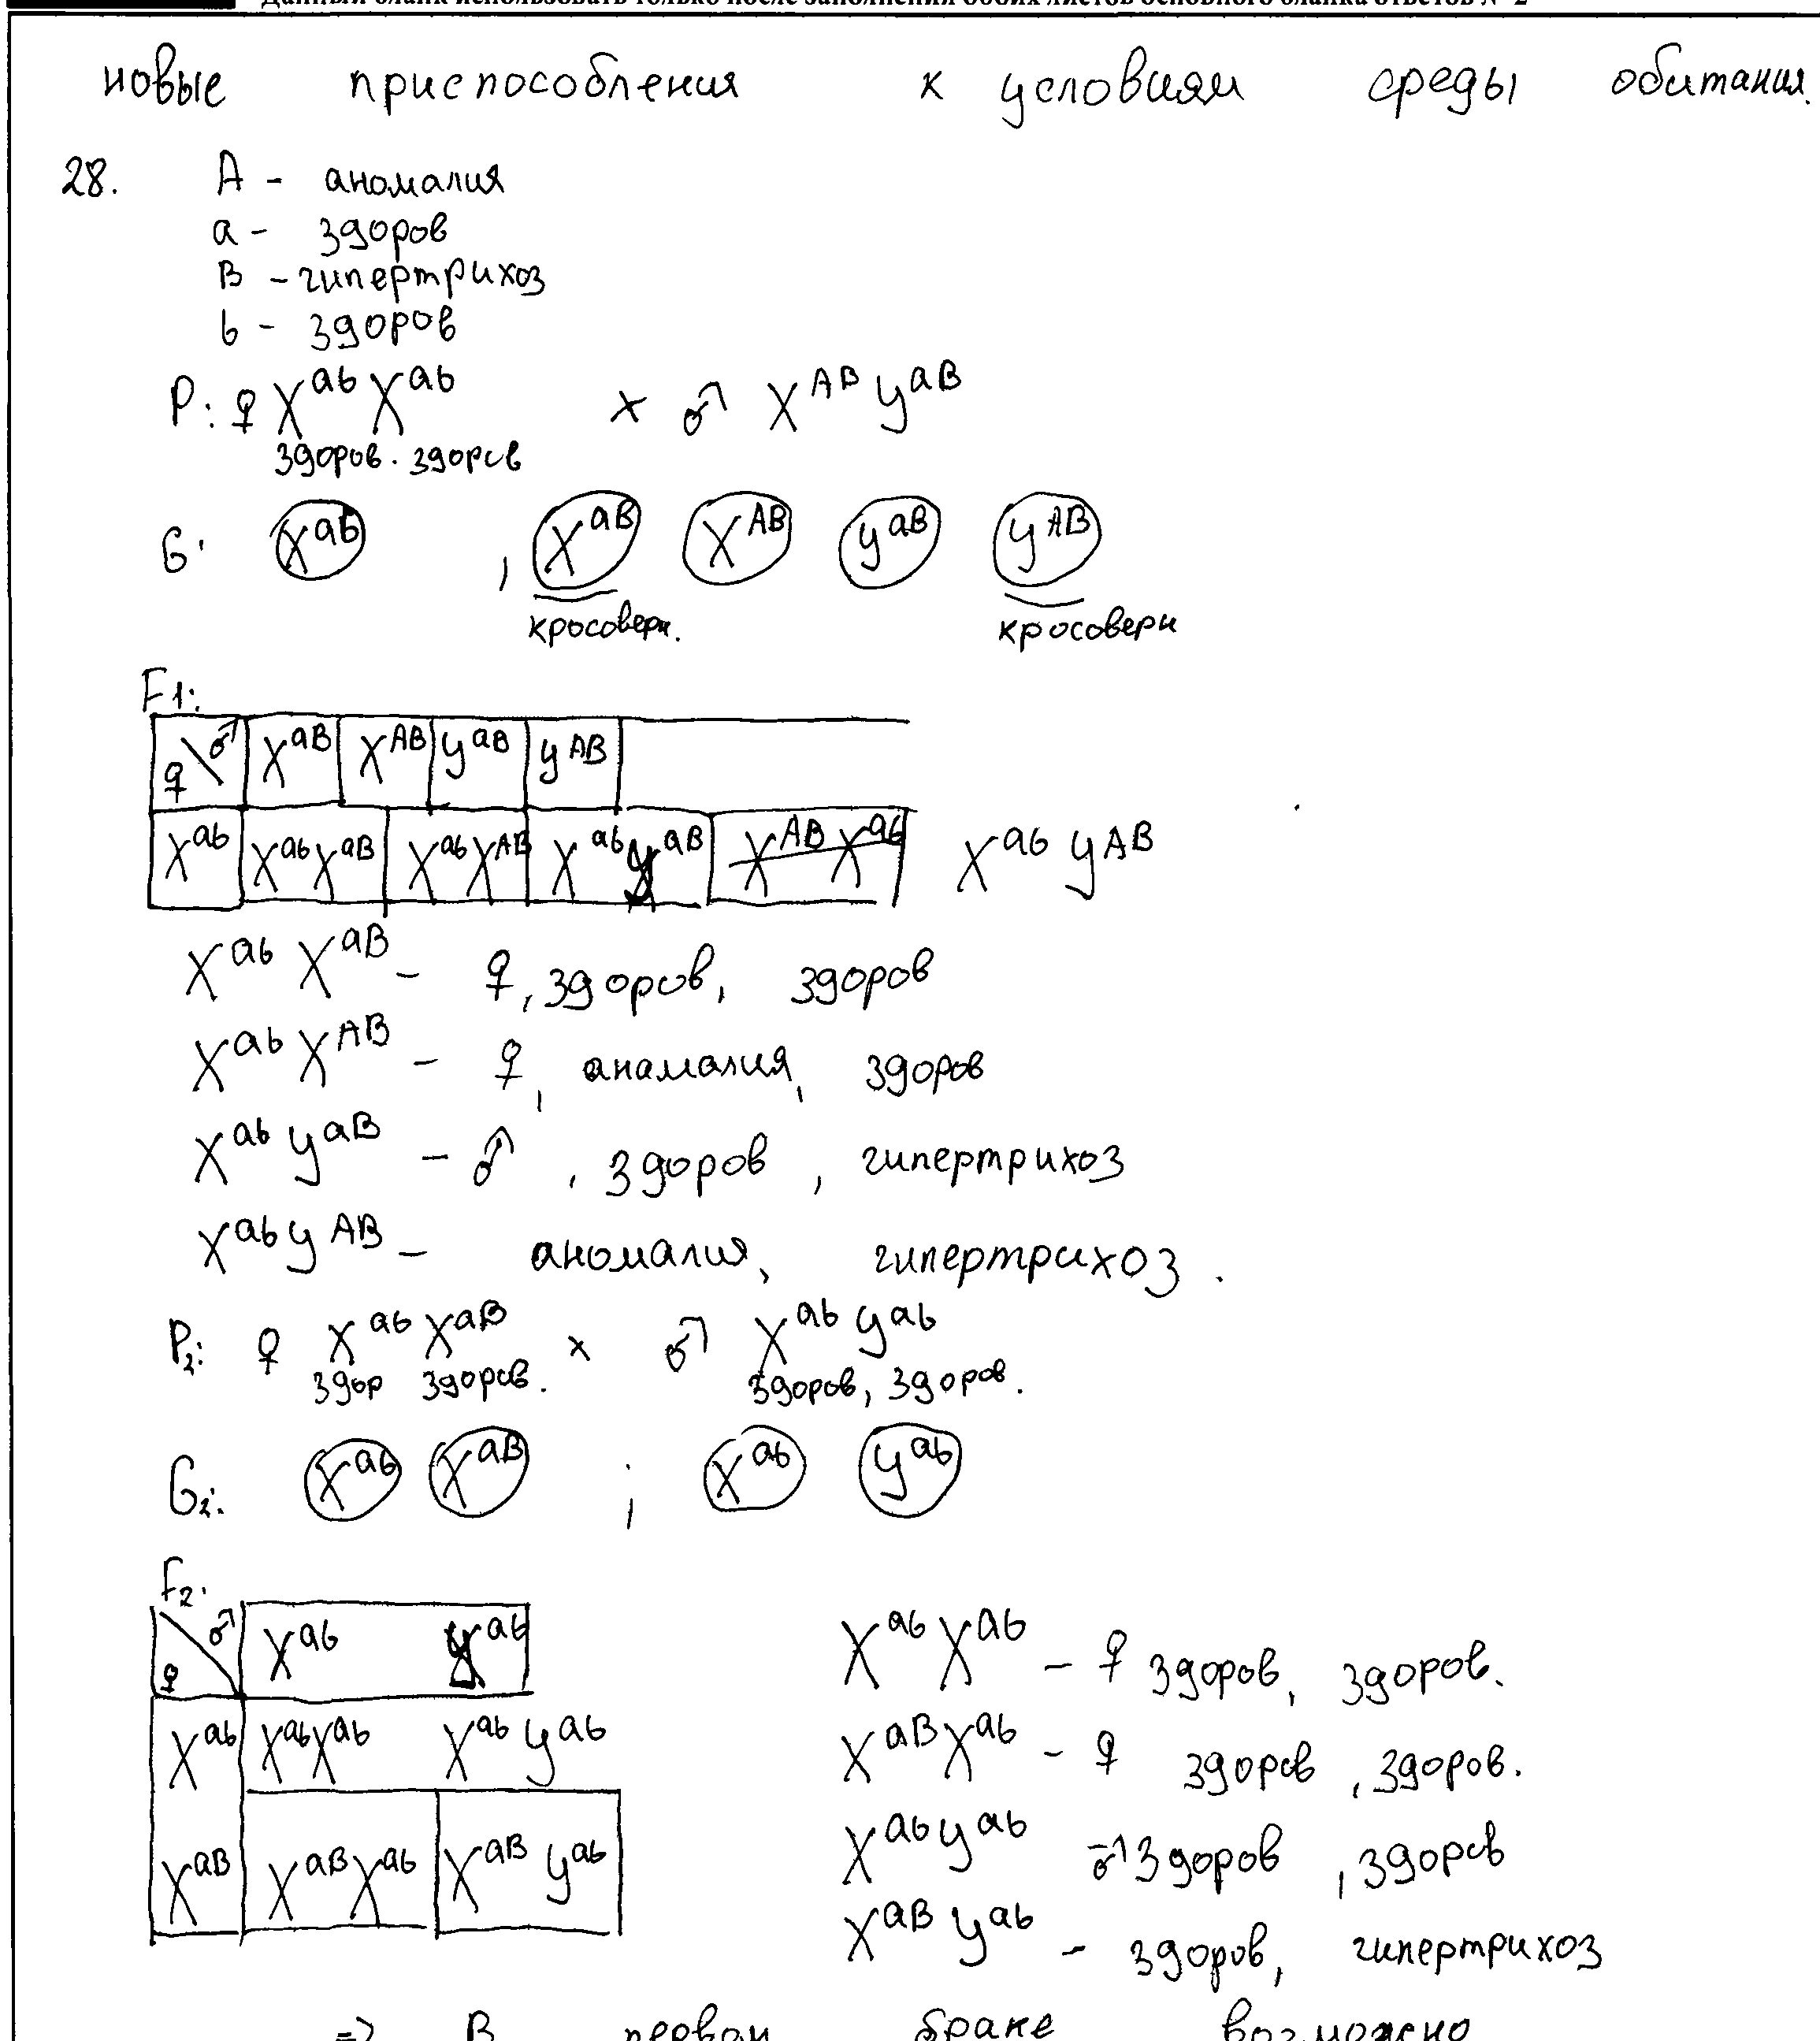 Данный бланк использовать только после заполнения обоих листов основного бланка ответов № 2
новые приспособления к условиям среды обитания.
28. A - аномалия
a - здоров
B - гипертрихоз
b - здоров
P: ♀ X^ab X^ab × ♂ X^AB Y^aB
здоров. здоров
G: X^ab , X^aB X^AB Y^aB Y^AB
кросоверн. кросоверн
F1:
♀ \ ♂ X^aB X^AB Y^aB Y^AB
X^ab X^ab X^aB X^ab X^AB X^ab Y^aB X^AB X^ab X^ab Y^AB
X^ab X^aB - ♀, здоров, здоров
X^ab X^AB - ♀, анамалия, здоров
X^ab Y^aB - ♂, здоров, гипертрихоз
X^ab Y^AB - аномалия, гипертрихоз.
P2: ♀ X^ab X^aB × ♂ X^ab Y^ab
здор здоров. здоров, здоров.
G2: X^ab X^aB ; X^ab Y^ab
F2:
♀ \ ♂ X^ab Y^ab
X^ab X^ab X^ab X^ab Y^ab
X^aB X^aB X^ab X^aB Y^ab
X^ab X^ab - ♀ здоров, здоров.
X^aB X^ab - ♀ здоров, здоров.
X^ab Y^ab - ♂ здоров, здоров
X^aB Y^ab - здоров, гипертрихоз
=> В первом браке возможно